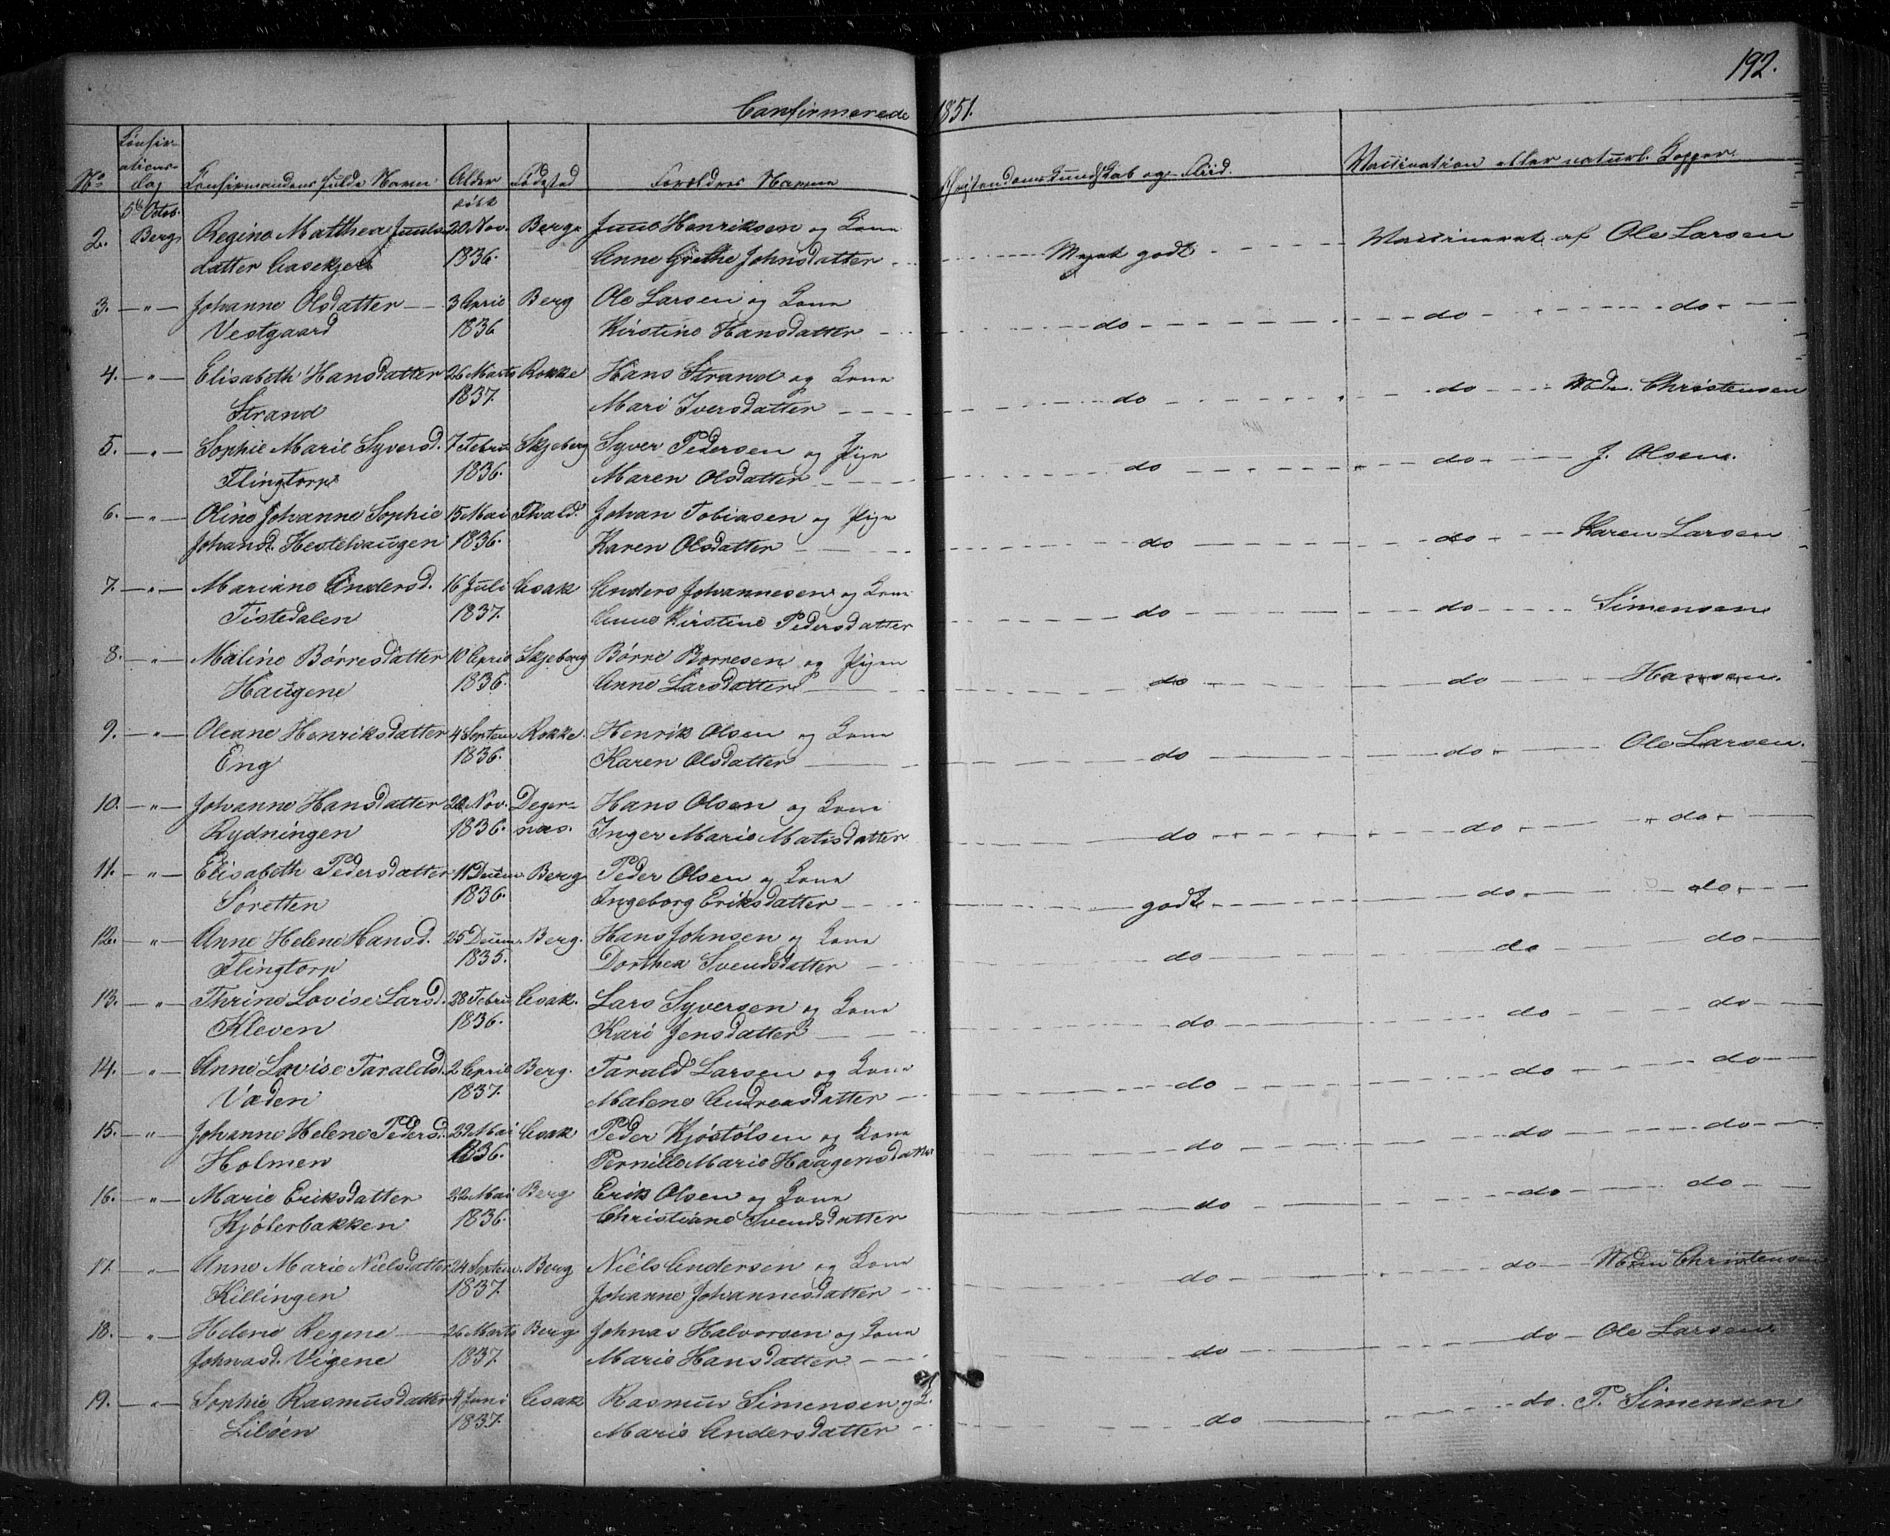 192.
Confirmerede 1851.
No Confirmationsdag Confirmandens fulde Navn Alder Fødested Forældres Navne Christendoms Kundskab og Flid. Vaccination eller naturl. Kopper.
5te Octob. født
2. Berg Regine Mathea Juuls 20 Nov. Berg Juul Henriksen og Kone Meget godt Vaccineret af Ole Larsen
datter Aasekjær 1836. Anne Grethe Johnsdatter
3. — " — Johanne Olsdatter 3 April Berg Ole Larsen og Kone do do do
Vestgaard 1836 Kirstine Hansdatter
4. — " — Elisabeth Hansdatter 26 Marts Rokke Hans Strand og Kone do do Christensen
Strand 1837. Mari Iversdatter
5. — " — Sophie Marie Syversd. 7 Febru Skjeberg Syver Pedersen og Pige do do J. Olsen.
Flingtorp 1836. Maren Olsdatter
6. — " — Oline Johanne Sophie 15 Mai Fhald. Johan Tobiasen og Pige do do Karen Larsen
Johansd. Hestehaugen 1836. Karen Olsdatter
7. — " — Mariane Andersd. 16 Juli Asak Anders Johannesen og Kone do do Simensen
Tistedalen 1837. Anne Kirstine Pedersdatter
8. — " — Maline Børresdatter 10 April Skjeberg Børre Borresen og Pigen do do Hansen.
Haugene 1836. Anne Larsdatter
9. — " — Oleane Henriksdatter 4 Septem Rokke. Henrik Olsen og Kone do do Ole Larsen.
Eng 1836. Karen Olsdatter
10. — " — Johanne Hansdatter 20 Nov. Deger- Hans Olsen og Kone do do " do
Rydningen 1836. næs. Inger Marie Matisdatter
11. — " — Elisabeth Pedersdatter 11 Decem. Berg Peder Olsen og Kone godt do do
Soretten 1836. Ingeborg Eriksdatter
12. — " — Anne Helene Hansd. 25 Decem. Berg. Hans Johnsen og Kone do do do
Flingtorp 1835. Dorthea Svendsdatter
13. — " — Thrine Lovise Larsd. 28 Febru Asak. Lars Syversen og Kone do do do
Kleven 1836. Kari Jensdatter
14. — " — Anne Lovise Taraldsd. 2 April Berg. Tarald Larsen og Kone do do do
Vaden 1837. Malene Andreasdatter
15. — " — Johanne Helene Pedersd. 29 Mai Asak Peder Kjøstolsen og Kone do do do
Holmen 1836. Pernille Marie Haagensdatter
16. — " — Marie Eriksdatter 22 Mai Berg Erik Olsen og Kone do do do
Kjølerbakken 1836. Christiane Svendsdatter
17. — " — Anne Marie Nielsdatter 24 Septem. Berg Niels Andersen og Kone do do Christensen
Killingen 1837. Johanne Johannesdatter
18. — " — Helene Regene 26 Marts Berg Johnas Halvorsen og Kone do do Ole Larsen
Johnasd. Vigene 1837. Marie Hansdatter
19. — " — Sophie Rasmusdatter 4 Juni Asak Rasmus Simensen og K. do do. P. Simensen
Liløen 1837. Marie Andersdatter